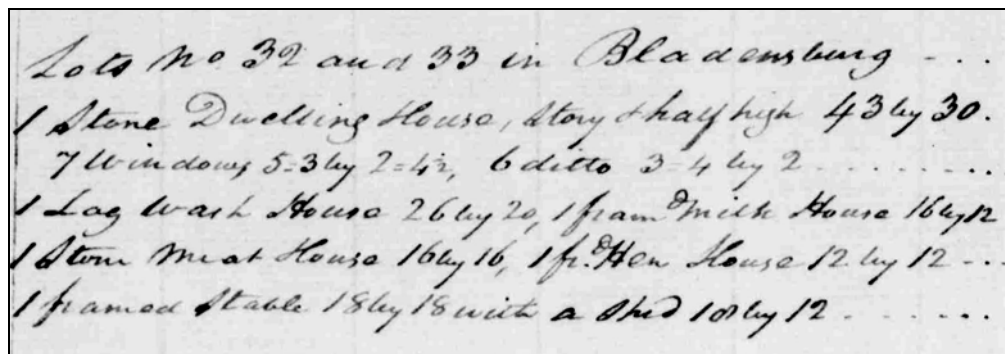 Lots No. 32 and 33 in Bladensburg ---
1 Stone Dwelling House, Story & half high 43 by 30.
7 Windows 5=3 by 2=4½, 6 ditto 3=4 by 2 ........
1 Log Wash House 26 by 20, 1 framd Milk House 16 by 12
1 Stone Meat House 16 by 16, 1 frd Hen House 12 by 12 ---
1 framed Stable 18 by 18 with a Shed 18 by 12 ......